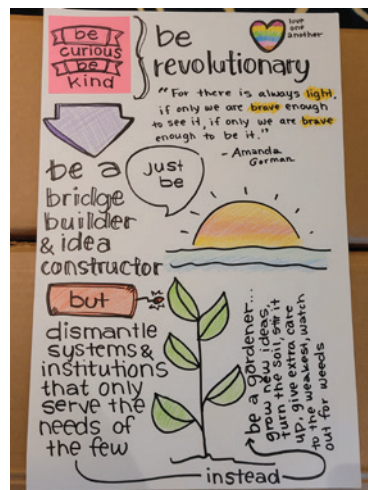 be
curious
be
kind
be
revolutionary
love
one
another
"For there is always light,
if only we are brave enough
to see it, if only we are brave
enough to be it."
- Amanda
Gorman
just
be
be a
bridge
builder
& idea
constructor
but
dismantle
systems &
institutions
that only
serve the
needs of
the few
instead
be a gardener...
grow new ideas,
turn the soil, stir it
up, give extra care
to the weakest, watch
out for weeds